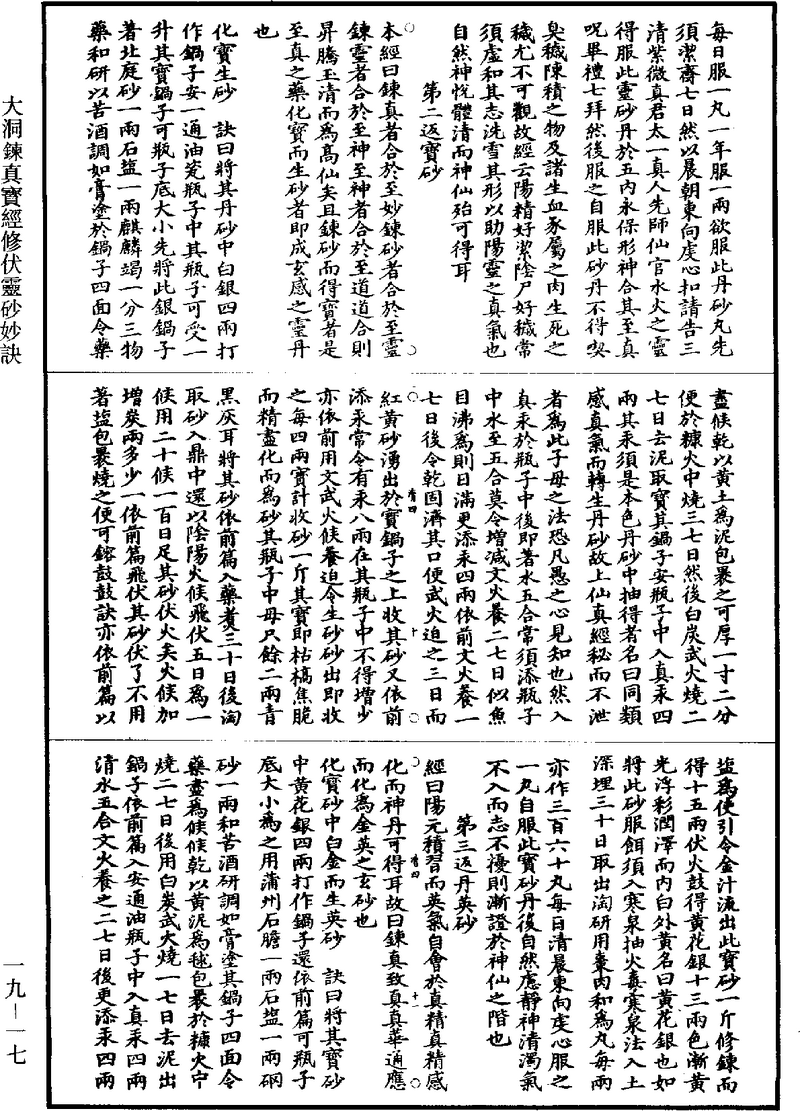 每日服一丸一年服一兩欲服此丹砂丸先
須潔齋七日然以晨朝東向虔心扣請告三
清紫微真君太一真人先師仙官水火之靈
得服此靈砂丹於五內永保形神合其至真
呪畢禮七拜然後服之自服此砂丹不得喫
臭穢陳積之物及諸生血豕屬之肉生死之
穢尤不可觀故經云陽精好潔陰尸好穢常
須虛和其志洗雪其形以助陽靈之真氣也
自然神悅體清而神仙殆可得耳
第二返寶砂
本經曰鍊真者合於至妙鍊砂者合於至靈
鍊靈者合於至神至神者合於至道道合則
昇騰玉清而為高仙矣且鍊砂而得寶者是
至真之藥化寶而生砂者即成玄感之靈丹
也
化寶生砂 訣曰將其丹砂中白銀四兩打
作鍋子安一通油瓷瓶子中其瓶子可受一
升其寶鍋子可瓶子底大小先將此銀鍋子
著北庭砂一兩石塩一兩麒麟竭一分三物
藥和研以苦酒調如膏塗於鍋子四面令藥
盡候乾以黃土為泥包裹之可厚一寸二分
便於糠火中燒三七日然後白炭武火燒二
七日去泥取寶其鍋子安瓶子中入真汞四
兩其汞須是本色丹砂中抽得者名曰同類
感真氣而轉生丹砂故上仙真經秘而不泄
者為此子母之法恐凡愚之心見知也然入
真汞於瓶子中後即著水五合常須添瓶子
中水至五合莫令增減文火養二七日似魚
目沸為則日滿更添汞四兩依前文火養一
七日後令乾固濟其口便武火迫之三日而
紅黃砂湧出於寶鍋子之上收其砂又依前
添汞常令有汞八兩在其瓶子中不得增少
亦依前用文武火候養迫令生砂砂出即收
之每四兩寶計收砂一斤其寶即枯槁焦脆
而精盡化而為砂其瓶子中毋只餘二兩青
黑灰耳將其砂依前篇入藥煑三十日後淘
取砂入鼎中還以陰陽火候飛伏五日為一
候用二十候一百日足其砂伏火矣火候加
增炭兩多少一依前篇飛伏其砂伏了不用
著塩包裹燒之便可鎔鼓鼓訣亦依前篇以
塩為使引令金汁流出此寶砂一斤修鍊而
得十五兩伏火鼓得黃花銀十三兩色漸黃
光浮彩潤澤而內白外黃名曰黃花銀也如
將此砂服餌須入寒泉抽火毒寒泉法入土
深埋三十日取出淘研用棗肉和為丸每兩
亦作三百六十丸每日清晨東向虔心服之
一丸自服此寶砂丹後自然慮靜神清濁氣
不入而志不擾則漸證於神仙之階也
第三返丹英砂
經曰陽元積習而英氣自會於真精真精感
化而神丹可得耳故曰鍊真致真真華通應
而化為金英之玄砂也
化寶砂中白金而生英砂 訣曰將其寶砂
中黃花銀四兩打作鍋子還依前篇可瓶子
底大小為之用蒲州石膽一兩石塩一兩硇
砂一兩和苦酒研調如膏塗其鍋子四面令
藥盡為候候乾以黃泥為毬包裹於糠火中
燒二七日後用白炭武火燒一七日去泥出
鍋子依前篇入安通油瓶子中入真汞四兩
清水五合文火養之二七日後更添汞四兩
大洞鍊真寶經修伏靈砂妙訣
一九-一七